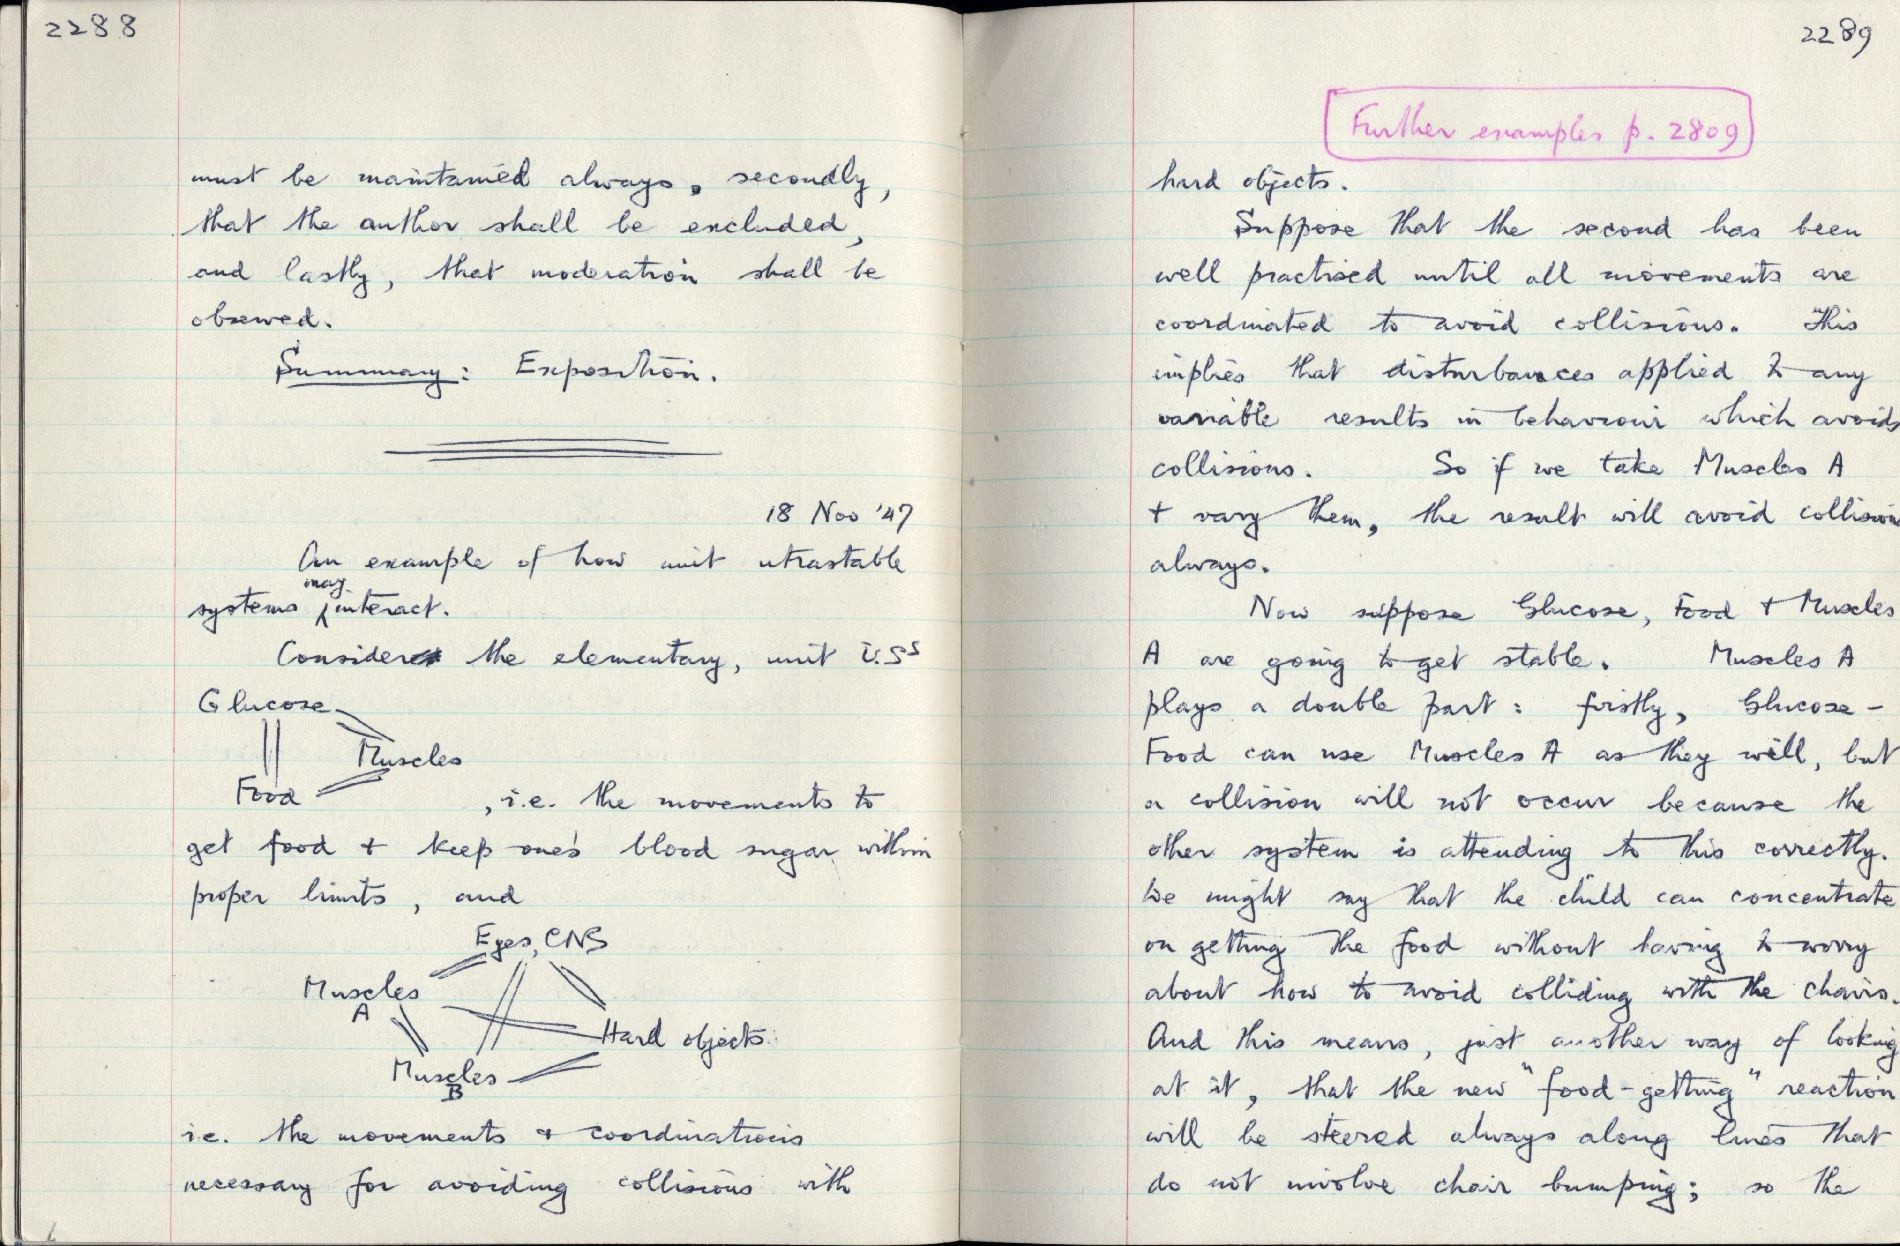 2288
must be maintained always, secondly,
that the author shall be excluded,
and lastly, that moderation shall be
observed.
Summary: Exposition.
18 Nov '47
An example of how unit utrastable
systems may interact.
Consider the elementary, unit U.S^s
Glucose
Muscles
Food
, i.e. the movements to
get food + keep one's blood sugar within
proper limits, and
Eyes, CNS
Muscles
A
Hard objects
Muscles
B
i.e. the movements + coordinations
necessary for avoiding collisions with
2289
Further examples p. 2809
hard objects.
Suppose that the second has been
well practised until all movements are
coordinated to avoid collisions. This
implies that disturbances applied to any
variable results in behaviour which avoids
collisions. So if we take Muscles A
+ vary them, the result will avoid collisions
always.
Now suppose Glucose, Food + Muscles
A are going to get stable. Muscles A
plays a double part: firstly, Glucose-
Food can use Muscles A as they will, but
a collision will not occur because the
other system is attending to this correctly.
We might say that the child can concentrate
on getting the food without having to worry
about how to avoid colliding with the chairs.
And this means, just another way of looking
at it, that the new "food-getting" reaction
will be steered always along lines that
do not involve chair bumping; so the